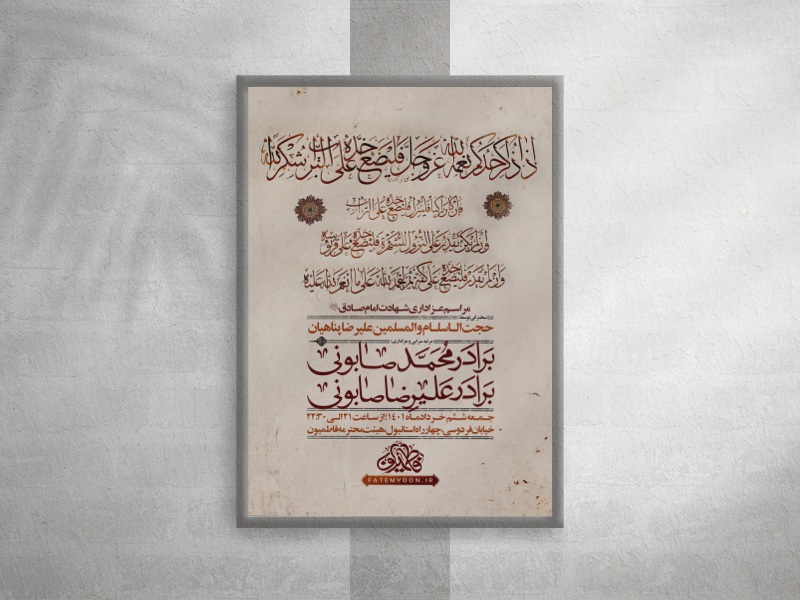 إذا ذكر أحدكم نعمة الله عز وجل فليضع خده على التراب شكرا لله
فإن كان راكبا فلينزل فليضع خده على التراب
وإن لم يكن يقدر على النزول للشهرة فليضع خده على قربوسه
وإن لم يقدر فليضع خده على كفه ثم ليحمد الله على ما أنعم الله عليه
مراسم عزاداری شهادت امام صادق
سخنرانی توسط
حجت الاسلام والمسلمین علیرضا پناهیان
مرثیه سرایی و عزاداری
برادر محمد صابونی
برادر علیرضا صابونی
جمعه ششم خردادماه ۱۴۰۱ از ساعت ۲۱ الی ۲۲:۳۰
خیابان فردوسی، چهارراه استانبول، هیئت محترمه فاطمیون
فاطمیون
FATEMYOON.IR